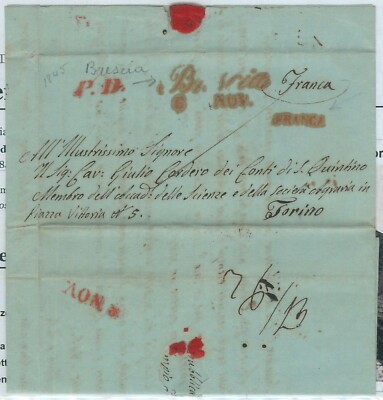 1845 Brescia
P. D.
Brescia
6 NOV.
Franca
FRANCA
All' Illustrissimo Signore
Il Sig. Cav. Giulio Cordero dei Conti di S. Quintino
Membro dell' Accad. delle Scienze e della Società Agraria in
Piazza Vittoria N° 5.
Torino
8 NOV